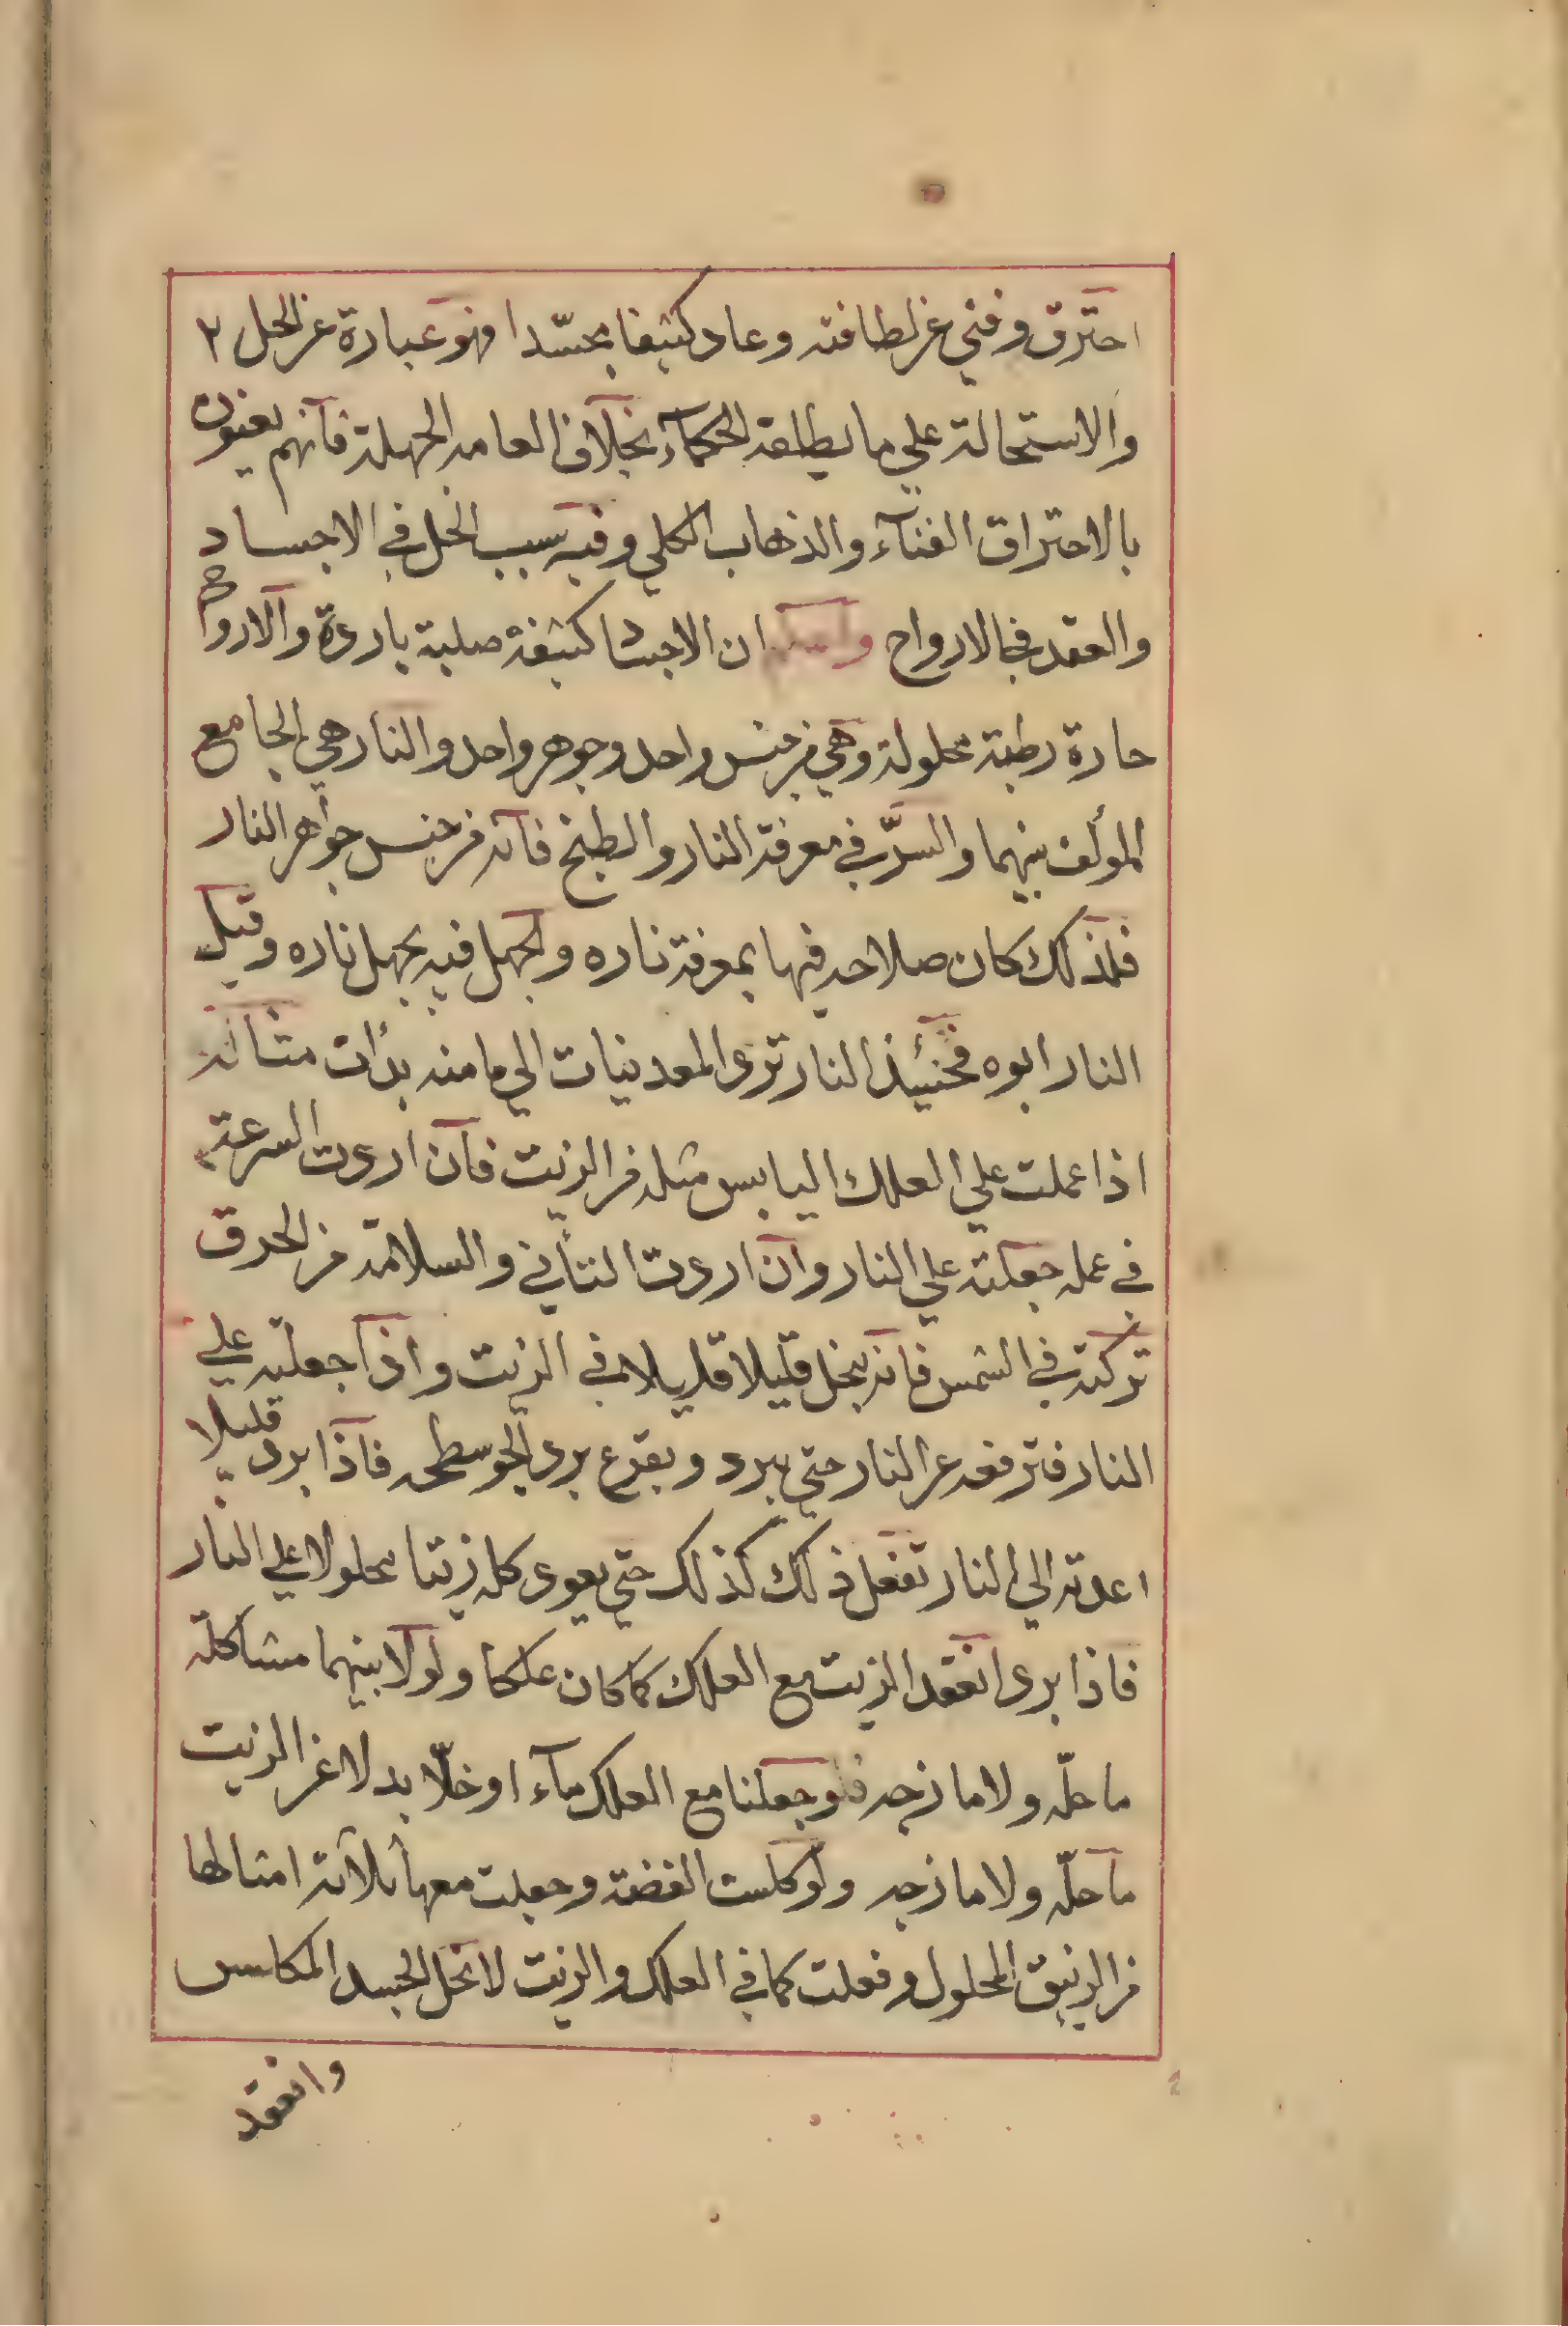 احترق وفني عن لطافته وعاد كثيفا مجسّدا فهو عبارة عن الحل ٢
والاستحالة علي ما يطلقه الحكمآء بخلاف العامه الجهلة فآنهم يعنون
بالاحتراق الفنآء والذهاب الكلي وفيه سبب الحل في الاجساد
والعقد في الارواح واعلم ان الاجساد كثيفة صلبة باردة والارواح
حارة رطبة محلولة وهي من جنس واحد وجوهر واحد والنار هي الجامع
المؤلف بينهما والسرّ في معرفة النار والطبخ فآنه من جنس جواهر النار
فلذلك كان صلاحه فيها بمعرفة ناره والجهل فيه بجهل ناره وقيل
النار ابوه فحنيئذ النار ترد المعدنيات الي ما منه بدأت مثاله
اذا عملت علي العلك اليابس مثله من الزيت فآن اردت السرعة
في عمله جعلته علي النار وان اردت التأني والسلامة من الحرق
تركته في الشمس فانه ينحل قليلا قليلا في الزيت واذا جعلته علي
النار فترفعه عن النار حتي يبرد ويقرع برد الجو سطحه فآذا برد قليلا
اعدته الي النار تفعل ذلك كذلك حتي يعود كله زيتا محلولا علي النار
فاذا برد انعقد الزيت مع العلك كما كان علكا ولولا بينهما مشاكلة
ما حلّه ولا مازجه فلو جعلنا مع العلك مآء او خلّا بدلا عن الزيت
ما حلّه ولا مازجه ولو كلست الفضة وجعلت معها ثلاثة امثالها
من الزنيبق المحلول وفعلت كما في العلك والزيت لانحل الجسد المكلس
وانعقد